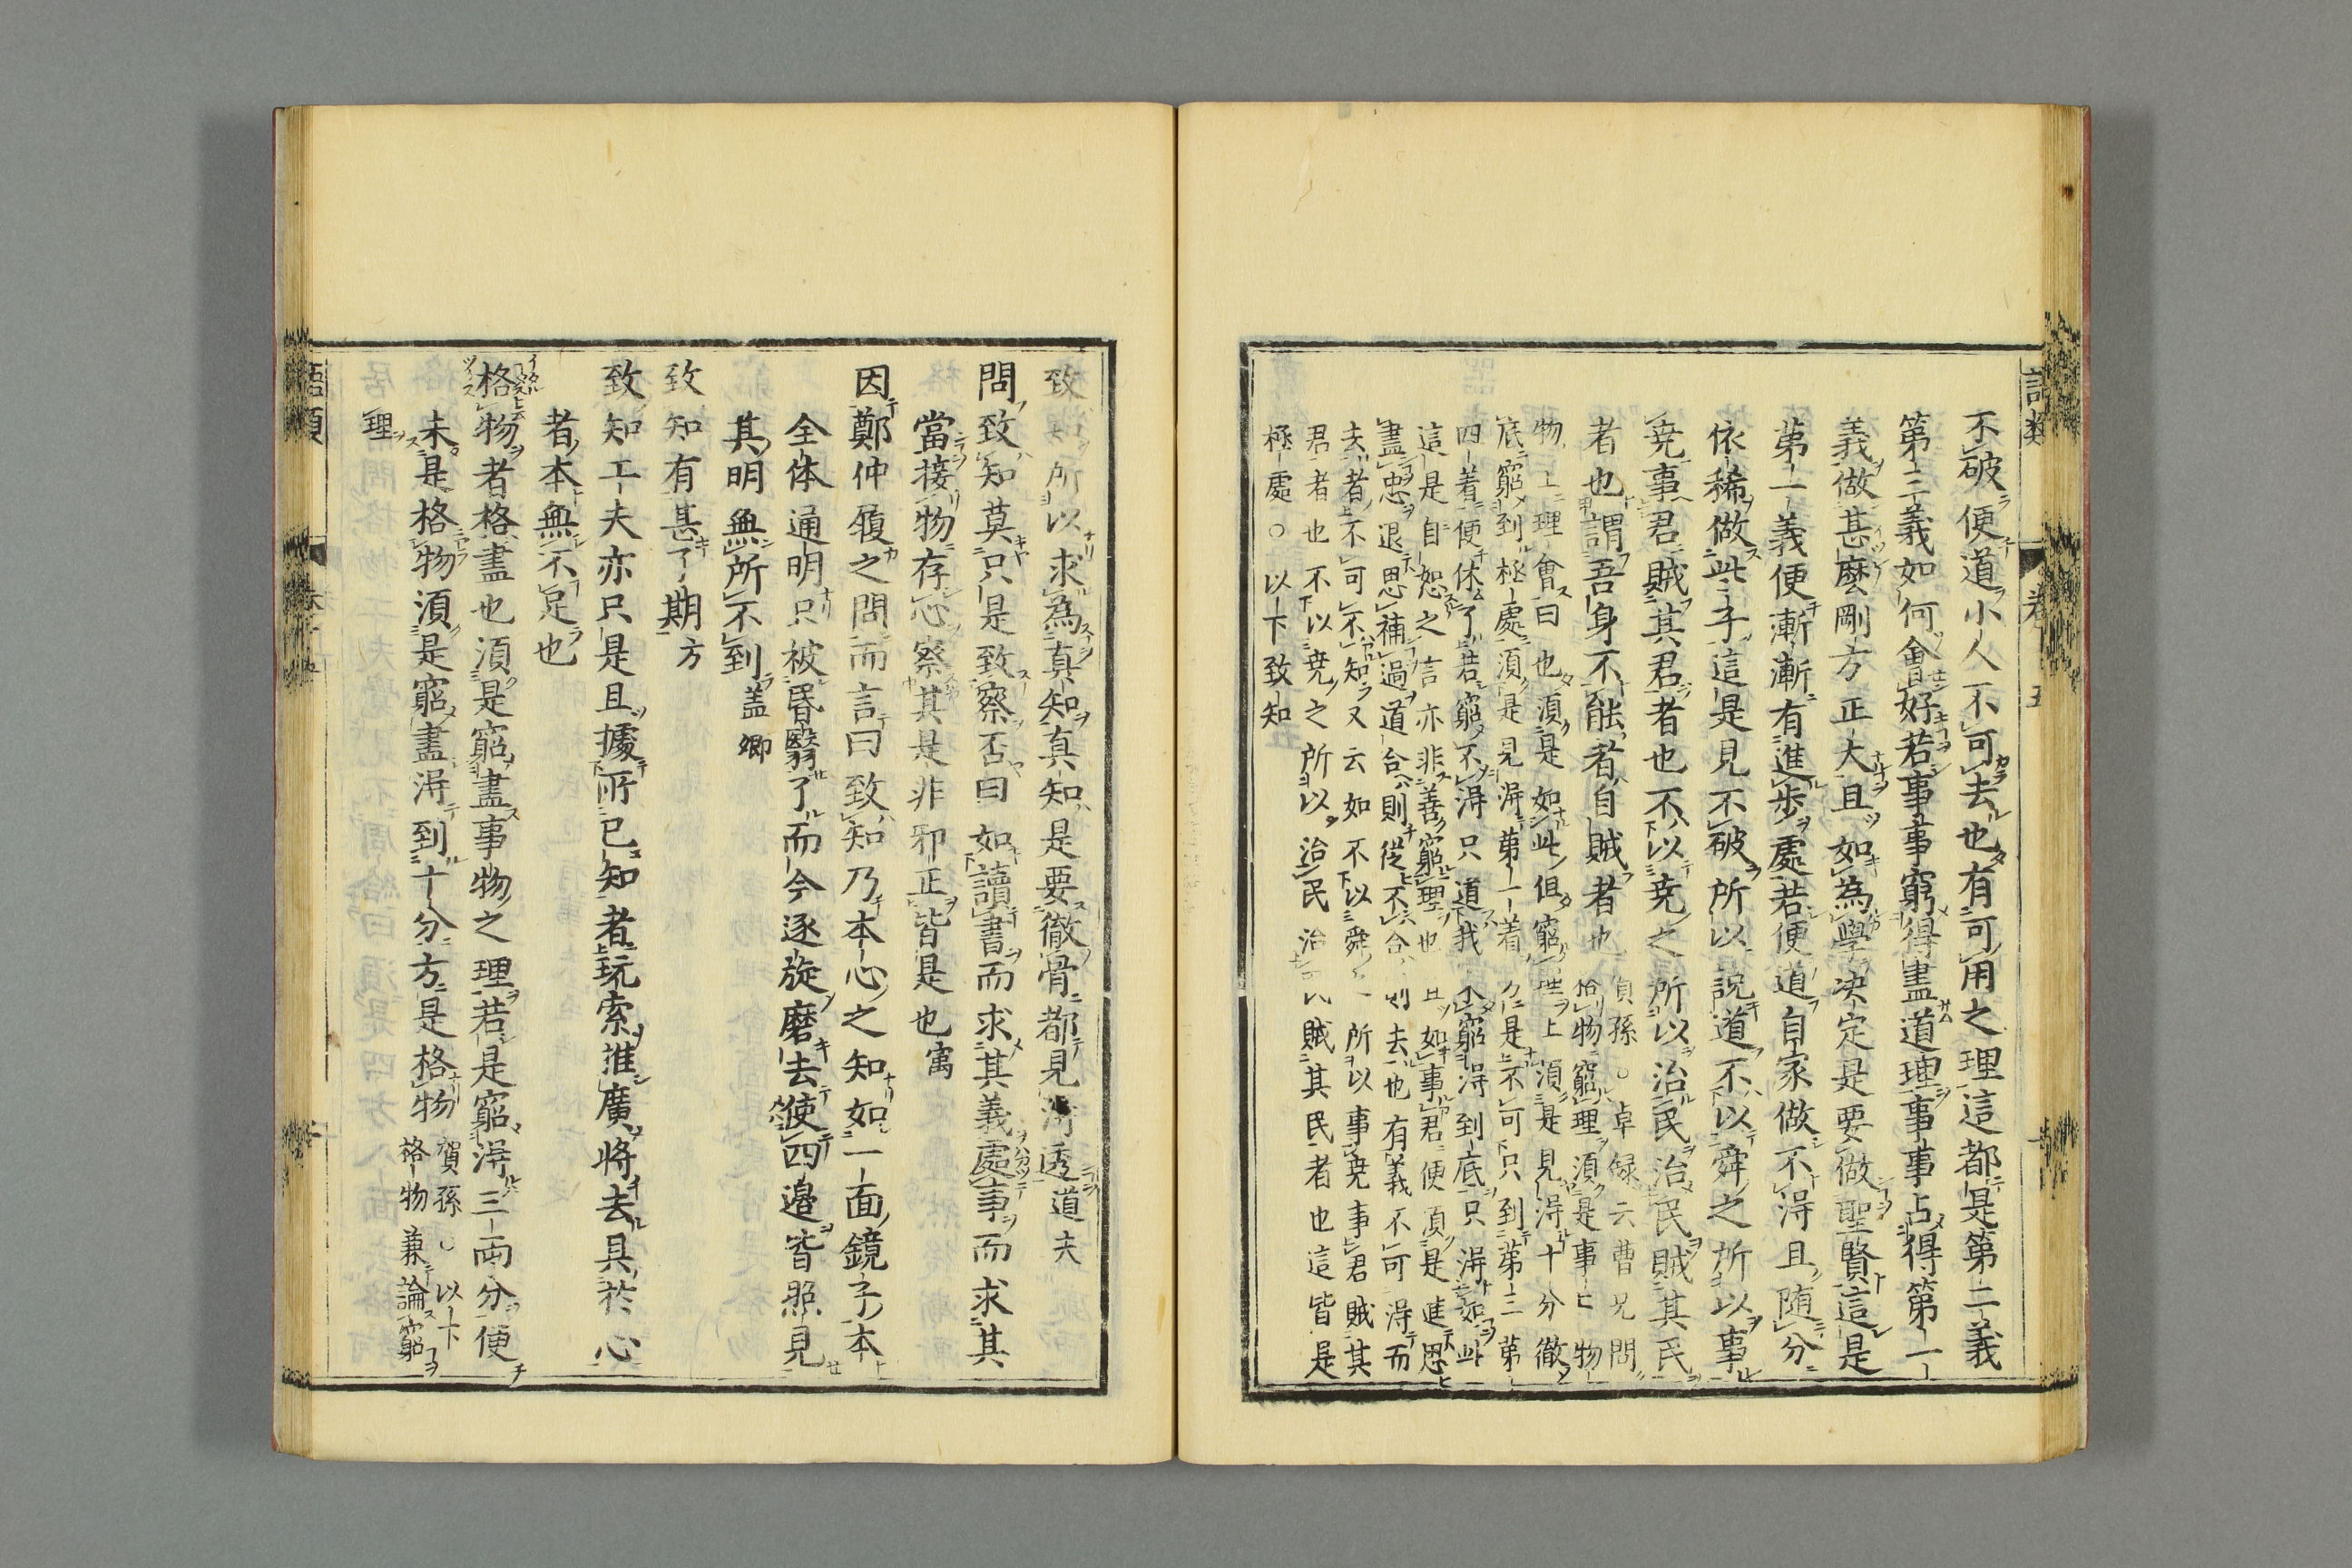 不破便道小人不可去也有可用之理這都是第二義
第二義如何會好若事事窮得盡道理事事占得第一
義做甚麼剛方正大且如為學决定是要做聖賢這是
第一義便漸漸有進步處若便道自家做不得且随分
依稀做些子這是見不破所以説道不以舜之所以事
堯事君賊其君者也不以堯之所以治民治民賊其民
者也謂吾身不能者自賊者也
賀孫○卓録云曹兄問
格物窮理須是事事物
物上理會曰也須是如此但窮理上須是見得十分徹
底窮到極處須是見得第一着方是不可只到第三第
四着便休了若窮不得只道我未窮得到底只得如此
這是自恕之言亦非善窮理也且如事君便須是進思
盡忠退思補過道合則從不合則去也有義不可得而
去者不可不知又云如不以舜之所以事堯事君賊其
君者也不以堯之所以治民治民賊其民者也這皆是
極處○以下致知
致知所以求為真知真知是要徹骨都見得透道夫
問致知莫只是致察否曰如讀書而求其義處事而求其
當接物存心察其是非邪正皆是也㝢
因鄭仲履之問而言曰致知乃本心之知如一面鏡子本
全体通明只被昬翳了而今逐旋磨去使四邊皆照見
其明無所不到蓋卿
致知有甚了期方
致知工夫亦只是且據所已知者玩索推廣將去具於心
者本無不足也
格物者格盡也須是窮盡事物之理若是窮得三兩分便
未是格物須是窮盡得到十分方是格物
賀孫○以下
格物兼論窮
理